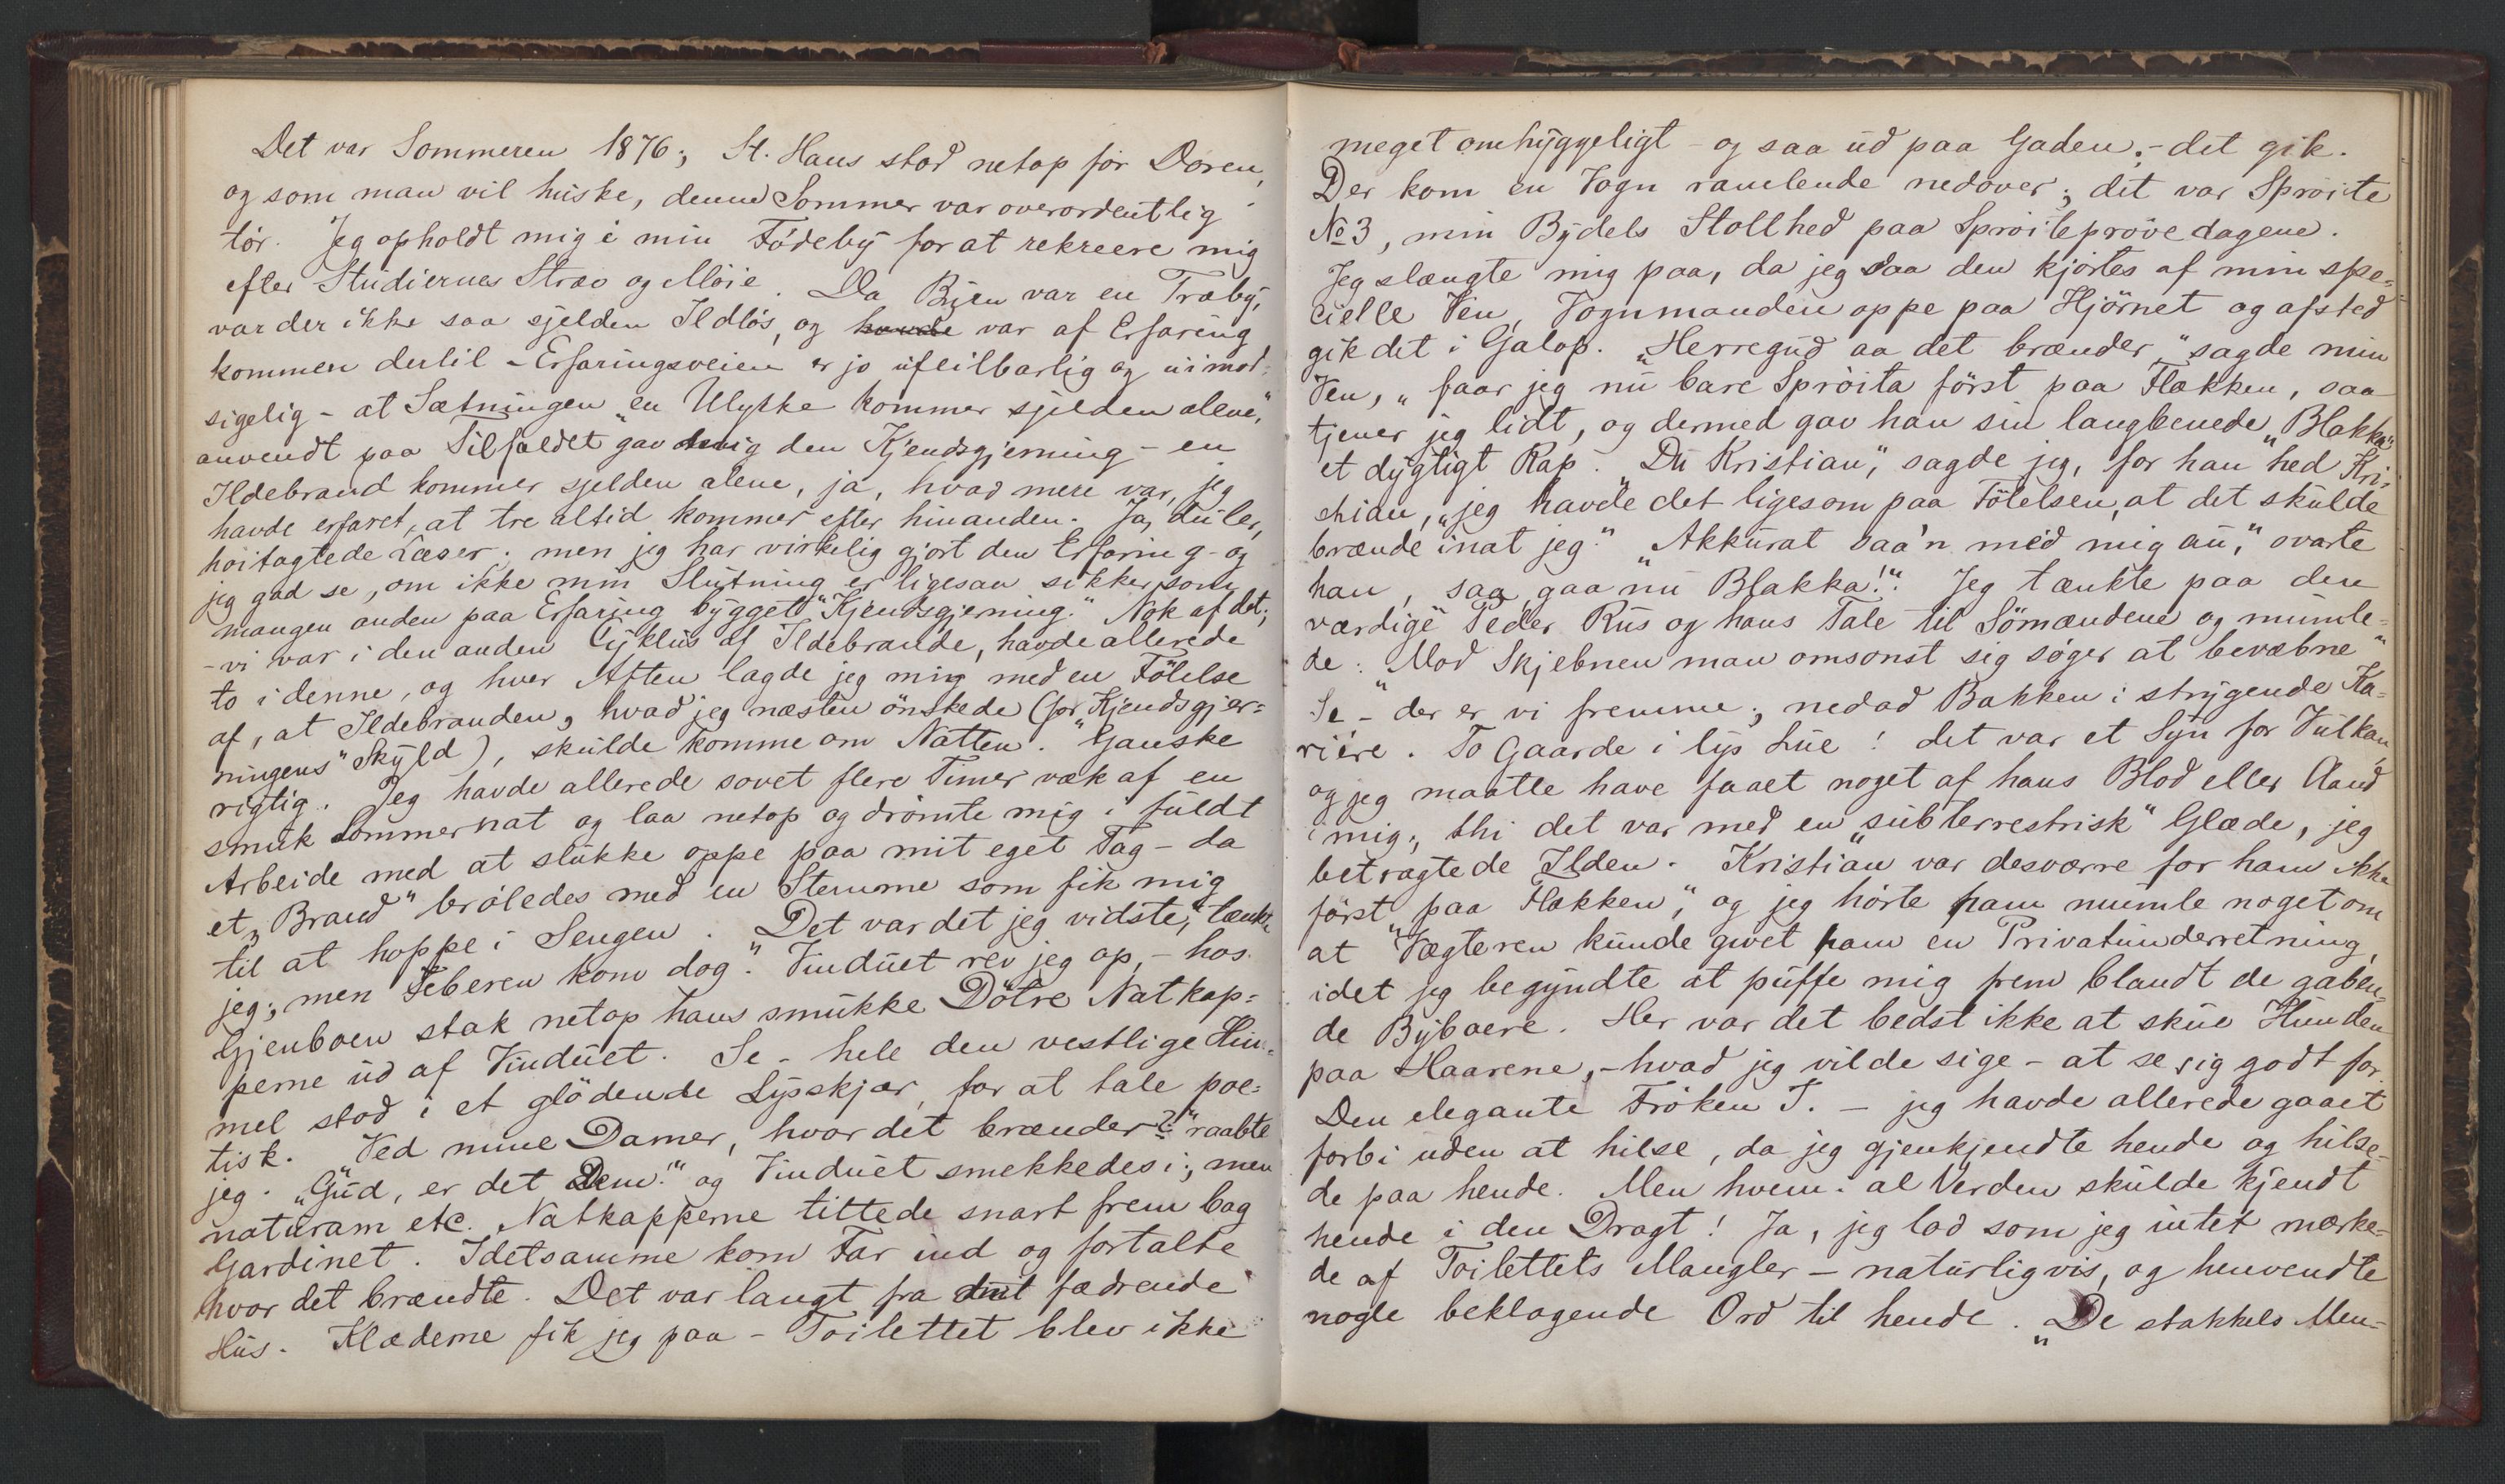 Det var Sommeren 1876; St. Hans stod netop for Døren,
og som man vil huske, denne Sommer var overordentlig
tör. Jeg opholdt mig i min Födeby for at rekreere mig
efter Studiernes Stræv og Möie. Da Byen var en Træby,
var der ikke saa sjelden Ildlös, og havde var af Erfaring
kommen dertil - Erfaringsveien er jo ufeilbarlig og uimod-
sigelig - at Sætningen „en Ulykke kommer sjelden alene,"
anvendt paa Tilfældet gav mig den Kjendsgjerning - en
Ildebrand kommer sjelden alene, ja, hvad mere var, jeg
havde erfaret, at tre altid kommer efter hinanden. Ja, du ler,
höitagtede Læser; men jeg har virkelig gjort den Erfaring - og
jeg gad se, om ikke min Slutning er ligesaa sikker som
mangen anden paa Erfaring bygget "Kjendsgjerning." Nok af det;
- vi var i den anden Cyklus af Ildebrande, havde allerede
to i denne, og hver Aften lagde jeg mig med en Fölelse
af, at Ildebranden, hvad jeg næsten önskede (for Kjendsgjer=
ningens" Skyld), skulde komme om Natten. Ganske
rigtig. Jeg havde allerede sovet flere Timer væk af en
smuk Sommernat og laa netop og drömte mig i fuldt
Arbeide med at slukke oppe paa mit eget Tag - da
et „Brand" bröledes med en Stemme som fik mig
til at hoppe i Sengen. Det var det jeg vidste, tænkte
jeg; men Feberen kom dog." Vinduet rev jeg op, - hos
Gjenboen stak netop hans smukke Dötre Natkap=
perne ud af Vinduet. Se - hele den vestlige Him=
mel stod i et glödende Lysskjær, for at tale poe=
tisk. Ved mine Damer, hvor det brænder?" raabte
jeg. „Gud, er det Dem!" og Vinduet smekkedes i; men
naturam etc. Natkapperne tittede snart frem bag
Gardinet. Idetsamme kom Far ind og fortalte
hvor det brændte. Det var langt fra mit fædrende
Hus. Klæderne fik jeg paa - Toilettet blev ikke
meget omhyggeligt - og saa ud paa Gaden; - det gik.
Der kom en Vogn ramlende nedover; det var Spröite
No 3, min Bydels Stolthed paa Spröiteprövedagene.
Jeg slængte mig paa, da jeg saa den kjörtes af min spe=
cielle Ven, Vognmanden oppe paa Hjörnet og afsted
gik det i Galop. „Herregud aa det brænder," sagde min
Ven, „faar jeg nu bare Spröita först paa Flækken, saa
tjener jeg lidt, og dermed gav han sin langbenede „Blakka"
et dygtigt Rap. „Du Kristian," sagde jeg, for han hed Kri-
stian, „jeg havde det ligesom paa Fölelsen, at det skulde
brænde inat jeg." „Akkurat saa'n med mig au," svarte
han, saa gaa nu Blakka!" Jeg tænkte paa den
værdige Peder Rus og hans Tale til Sömændene og mumle=
de: „Mod Skjebnen man omsonst sig söger at bevæbne"
Se - der er vi fremme; nedad Bakken i strygende Ka=
riére. To Gaarde i lys Lue! det var et Syn for Vulkan,
og jeg maatte have faaet noget af hans Blod eller Aand
i mig; thi det var med en „subterrestrisk" Glæde, jeg
betragtede Ilden. Kristian var desværre for ham ikke
först „paa Flækken," og jeg hörte ham mumle noget om
at Vægteren kunde givet ham en Privatunderretning,
idet jeg begyndte at puffe mig frem blandt de gaben-
de Byboere. Her var det bedst ikke at skue Hunden
paa Haarene, - hvad jeg vilde sige - at se sig godt for.
Den elegante Fröken T. - jeg havde allerede gaaet
forbi uden at hilse, da jeg gjenkjendte hende og hilse-
de paa hende. Men hvem i al Verden skulde kjendt
hende i den Dragt! Ja, jeg lod som jeg intet mærke=
de af Toilettets Mangler - naturligvis, og henvendte
nogle beklagende Ord til hende. „De stakkels Men=